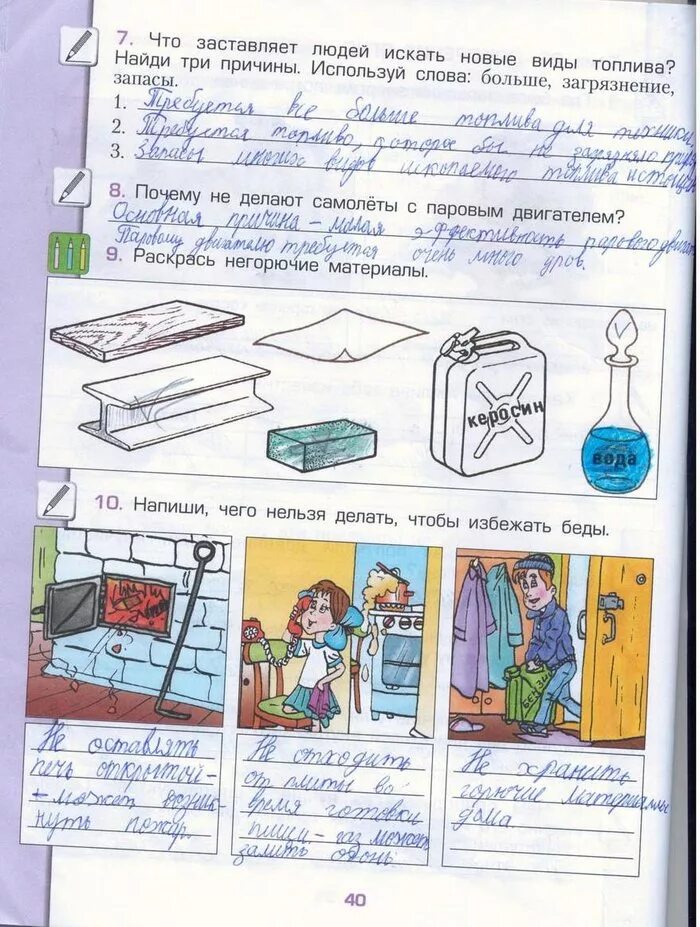 7. Что заставляет людей искать новые виды топлива?
Найди три причины. Используй слова: больше, загрязнение,
запасы.
1. Требуется все больше топлива для техники
2. Требуется топливо, которое бы не загрязняло
3. Запасы многих видов ископаемого топлива
8. Почему не делают самолёты с паровым двигателем?
Основная причина – малая эффективность парового
Паровому двигателю требуется очень много дров.
9. Раскрась негорючие материалы.
керосин
вода
10. Напиши, чего нельзя делать, чтобы избежать беды.
БЕНЗИН
Не оставлять
печь открытой-
- может возник-
нуть пожар
Не отходить
от плиты во
время готовки
пищи – газ может
залить огонь.
Не хранить
горючие материалы
дома
40